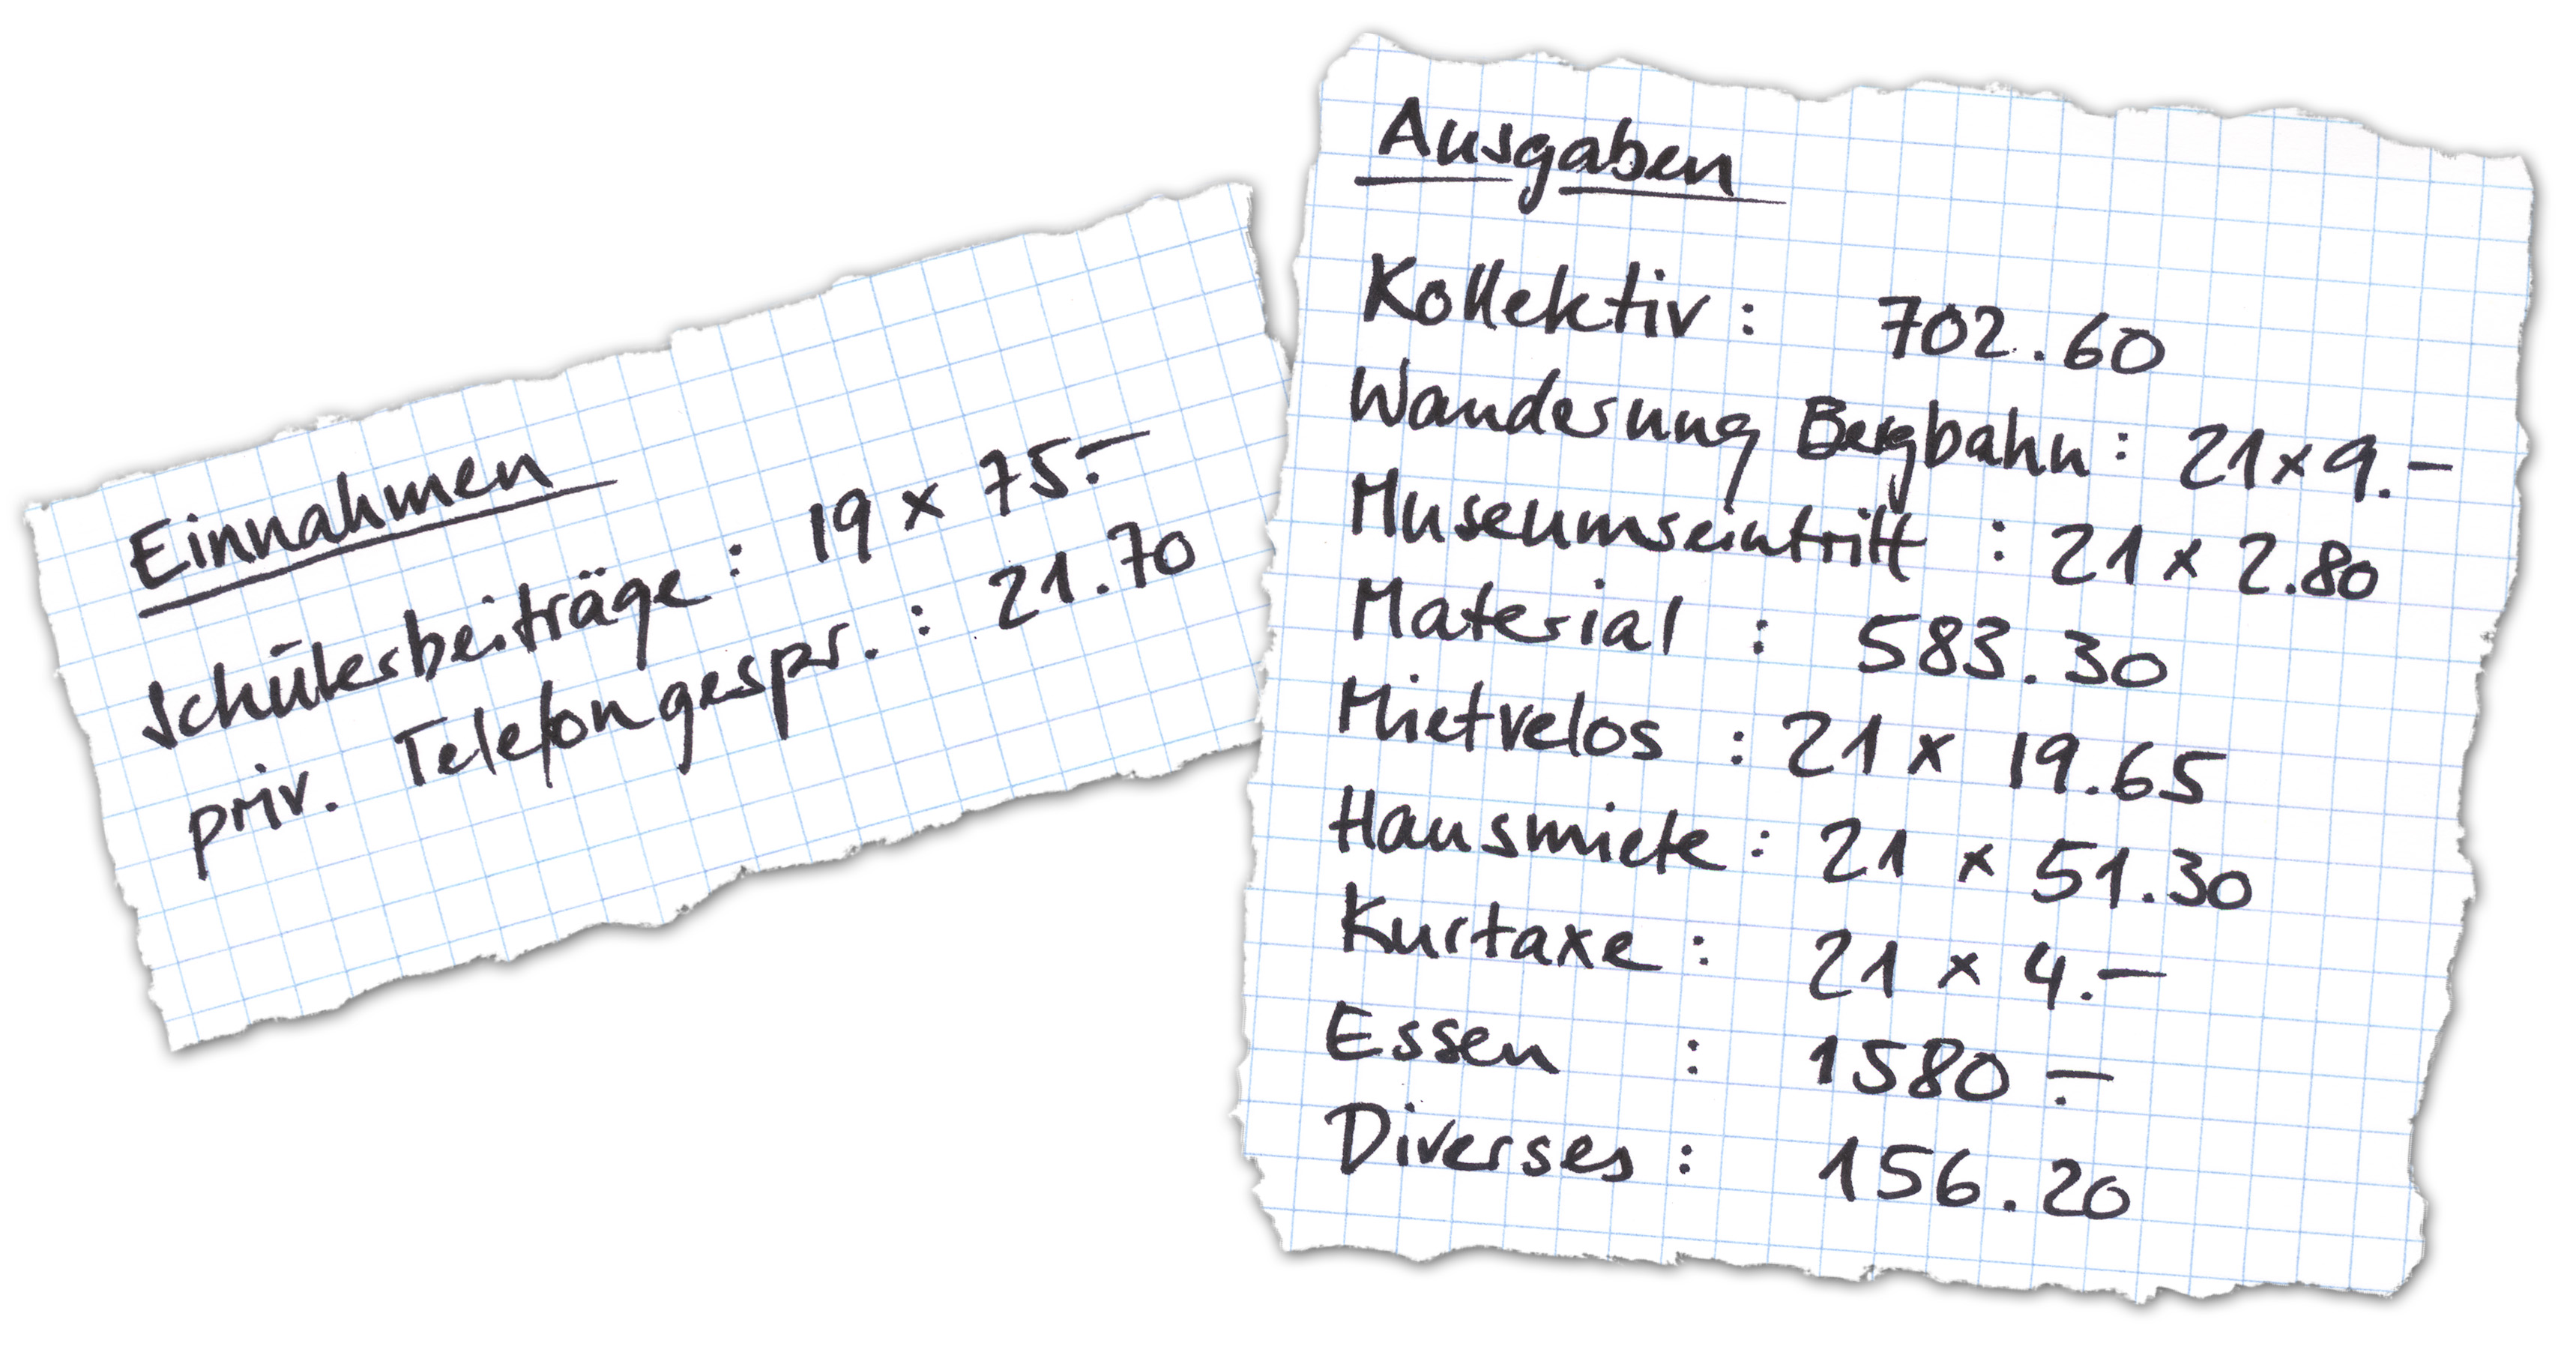 Einnahmen
Schülerbeiträge : 19 x 75.-
priv. Telefongespr. : 21.70
Ausgaben
Kollektiv : 702.60
Wanderung Bergbahn : 21 x 9.-
Museumseintritt : 21 x 2.80
Material : 583.30
Mietvelos : 21 x 19.65
Hausmiete : 21 x 51.30
Kurtaxe : 21 x 4.-
Essen : 1580.-
Diverses : 156.20